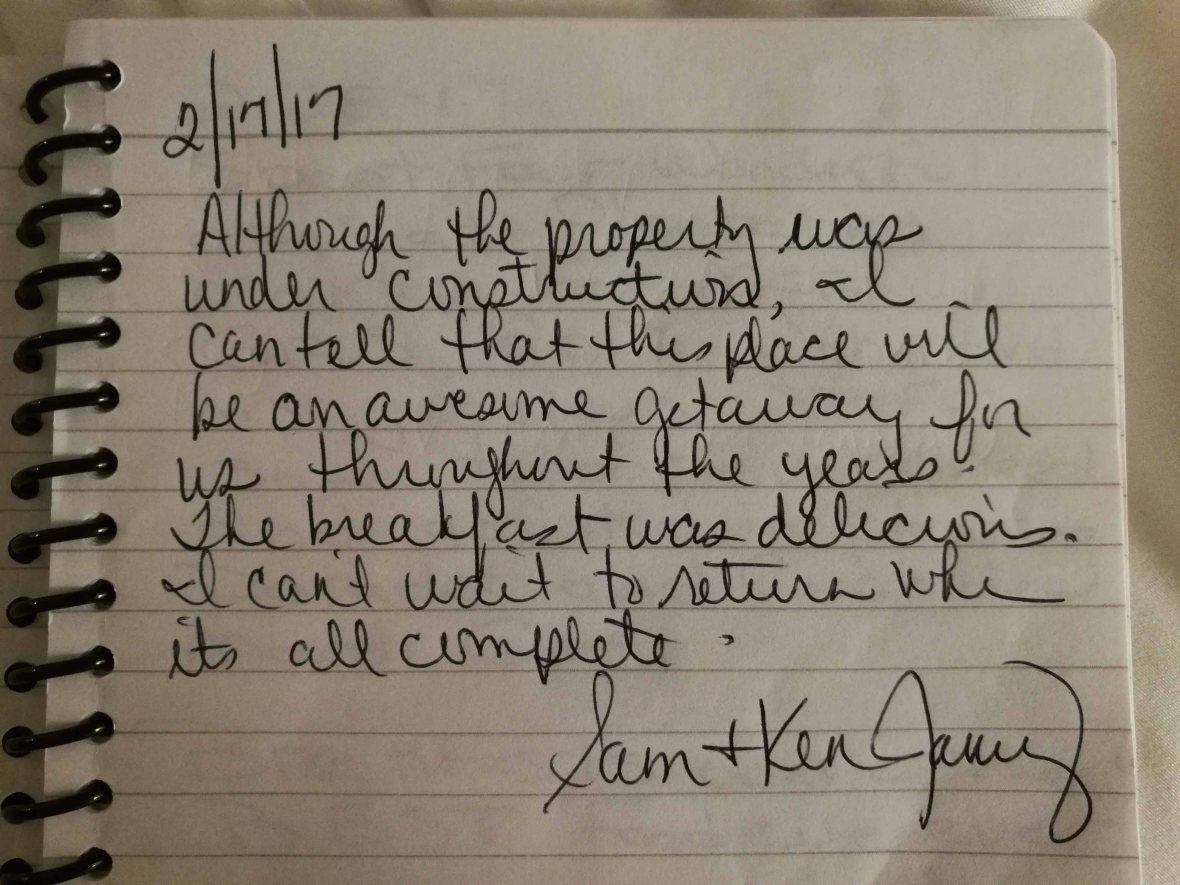 2/17/17
Although the property was
under construction, I
can tell that this place will
be an awesome getaway for
us throughout the years.
The breakfast was delicious.
I can't wait to return when
its all complete.
Sam + Ken